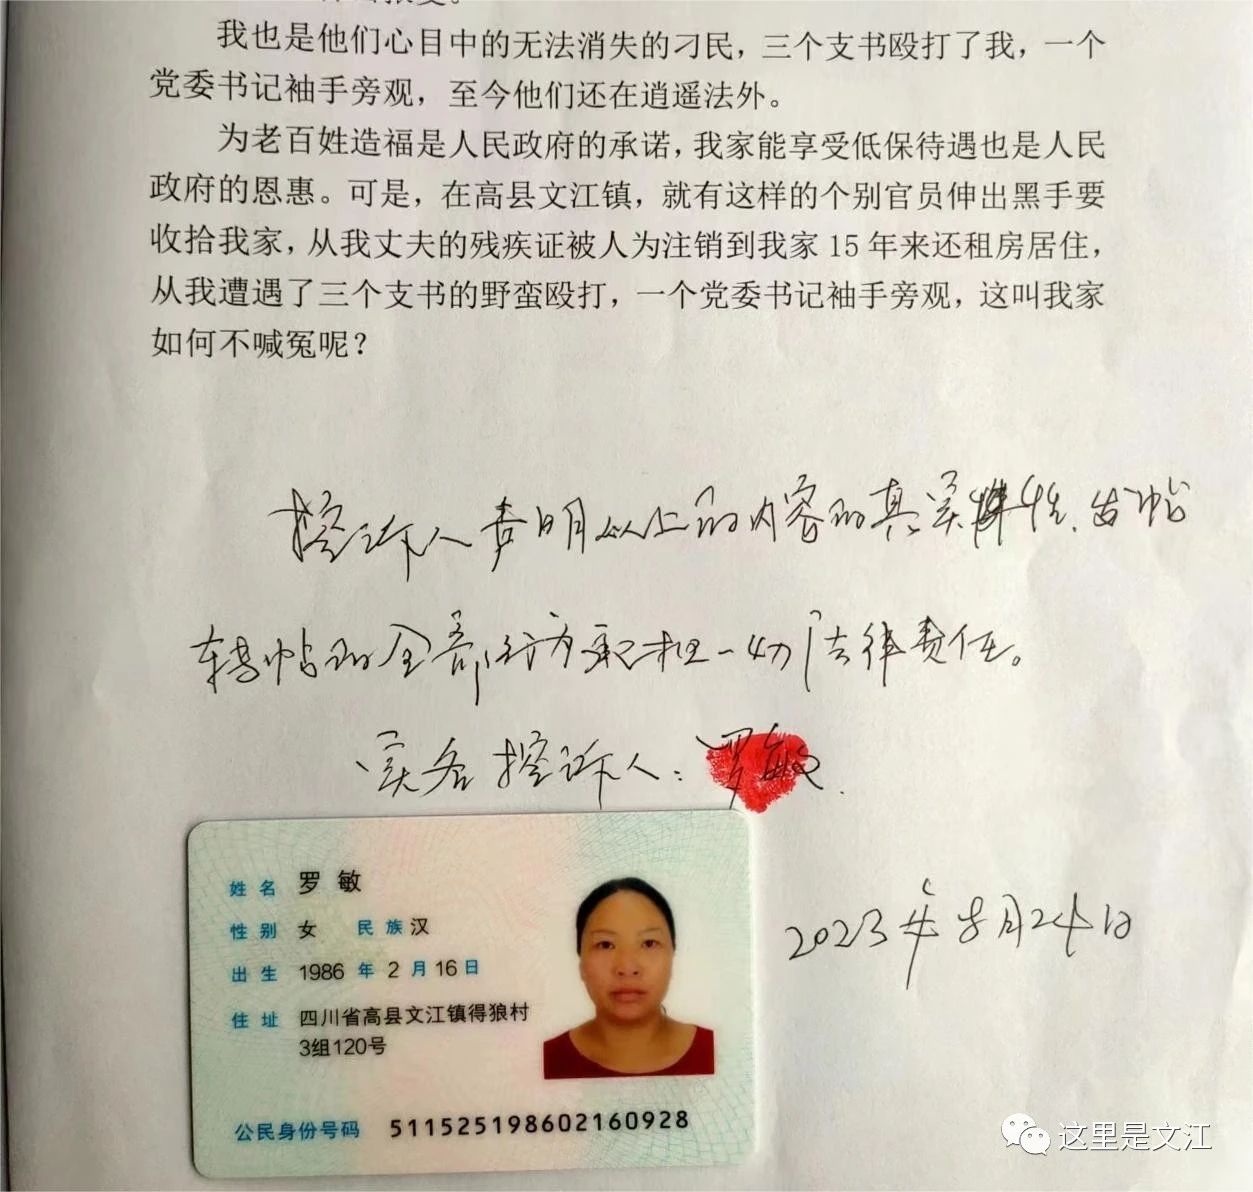 我也是他们心目中的无法消失的刁民，三个支书殴打了我，一个
党委书记袖手旁观，至今他们还在逍遥法外。
为老百姓造福是人民政府的承诺，我家能享受低保待遇也是人民
政府的恩惠。可是，在高县文江镇，就有这样的个别官员伸出黑手要
收拾我家，从我丈夫的残疾证被人为注销到我家 15 年来还租房居住，
从我遭遇了三个支书的野蛮殴打，一个党委书记袖手旁观，这叫我家
如何不喊冤呢？
控诉人声明以上的内容的真实性、发帖
转帖的全部行为承担一切法律责任。
实名控诉人：罗敏
姓名 罗敏
性别 女 民族 汉
出生 1986 年 2 月 16 日
住址 四川省高县文江镇得狼村
3组120号
2023年8月24日
公民身份号码 511525198602160928
这里是文江